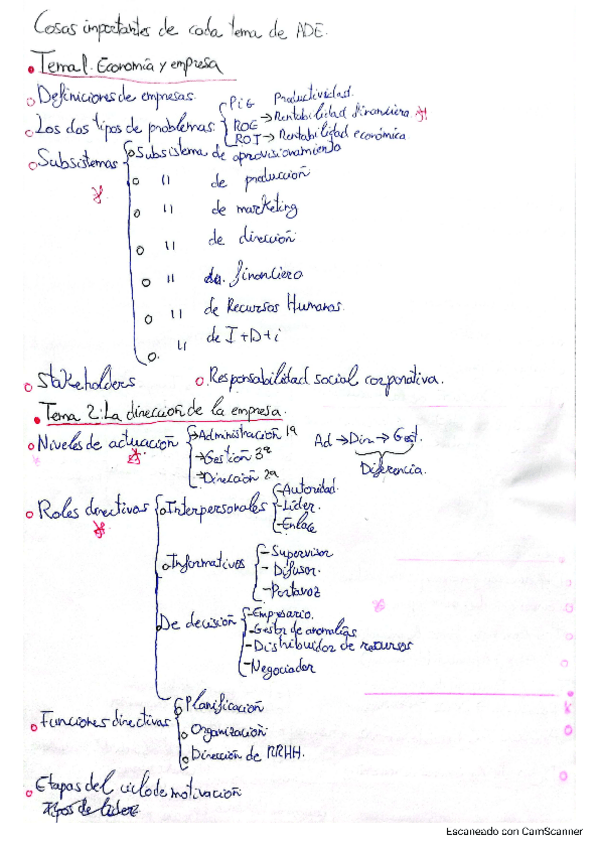 Cosas importantes de cada tema de ADE.
Tema 1. Economía y empresa
Definiciones de empresas.
Los dos tipos de problemas { PiG Productividad.
ROE → Rentabilidad financiera
ROI → Rentabilidad económica
Subsistemas { Subsistema de aprovisionamiento
" de producción
" de marketing
" de dirección
" financiero
" de Recursos Humanos.
" de I+D+i
Stakeholders Responsabilidad social corporativa.
Tema 2: La dirección de la empresa.
Niveles de actuación { → Administración 1ª Ad → Dir → Gest.
→ Gestión 3ª
→ Dirección 2ª Diferencia.
Roles directivos { Interpersonales { - Autoridad.
- Líder.
- Enlace
Informativos { - Supervisor
- Difusor.
- Portavoz
De decisión { - Empresario.
- Gestor de anomalías
- Distribuidor de recursos
- Negociador
Funciones directivas { Planificación
Organización.
Dirección de RRHH.
Etapas del ciclo de motivación
Tipos de líder
Escaneado con CamScanner